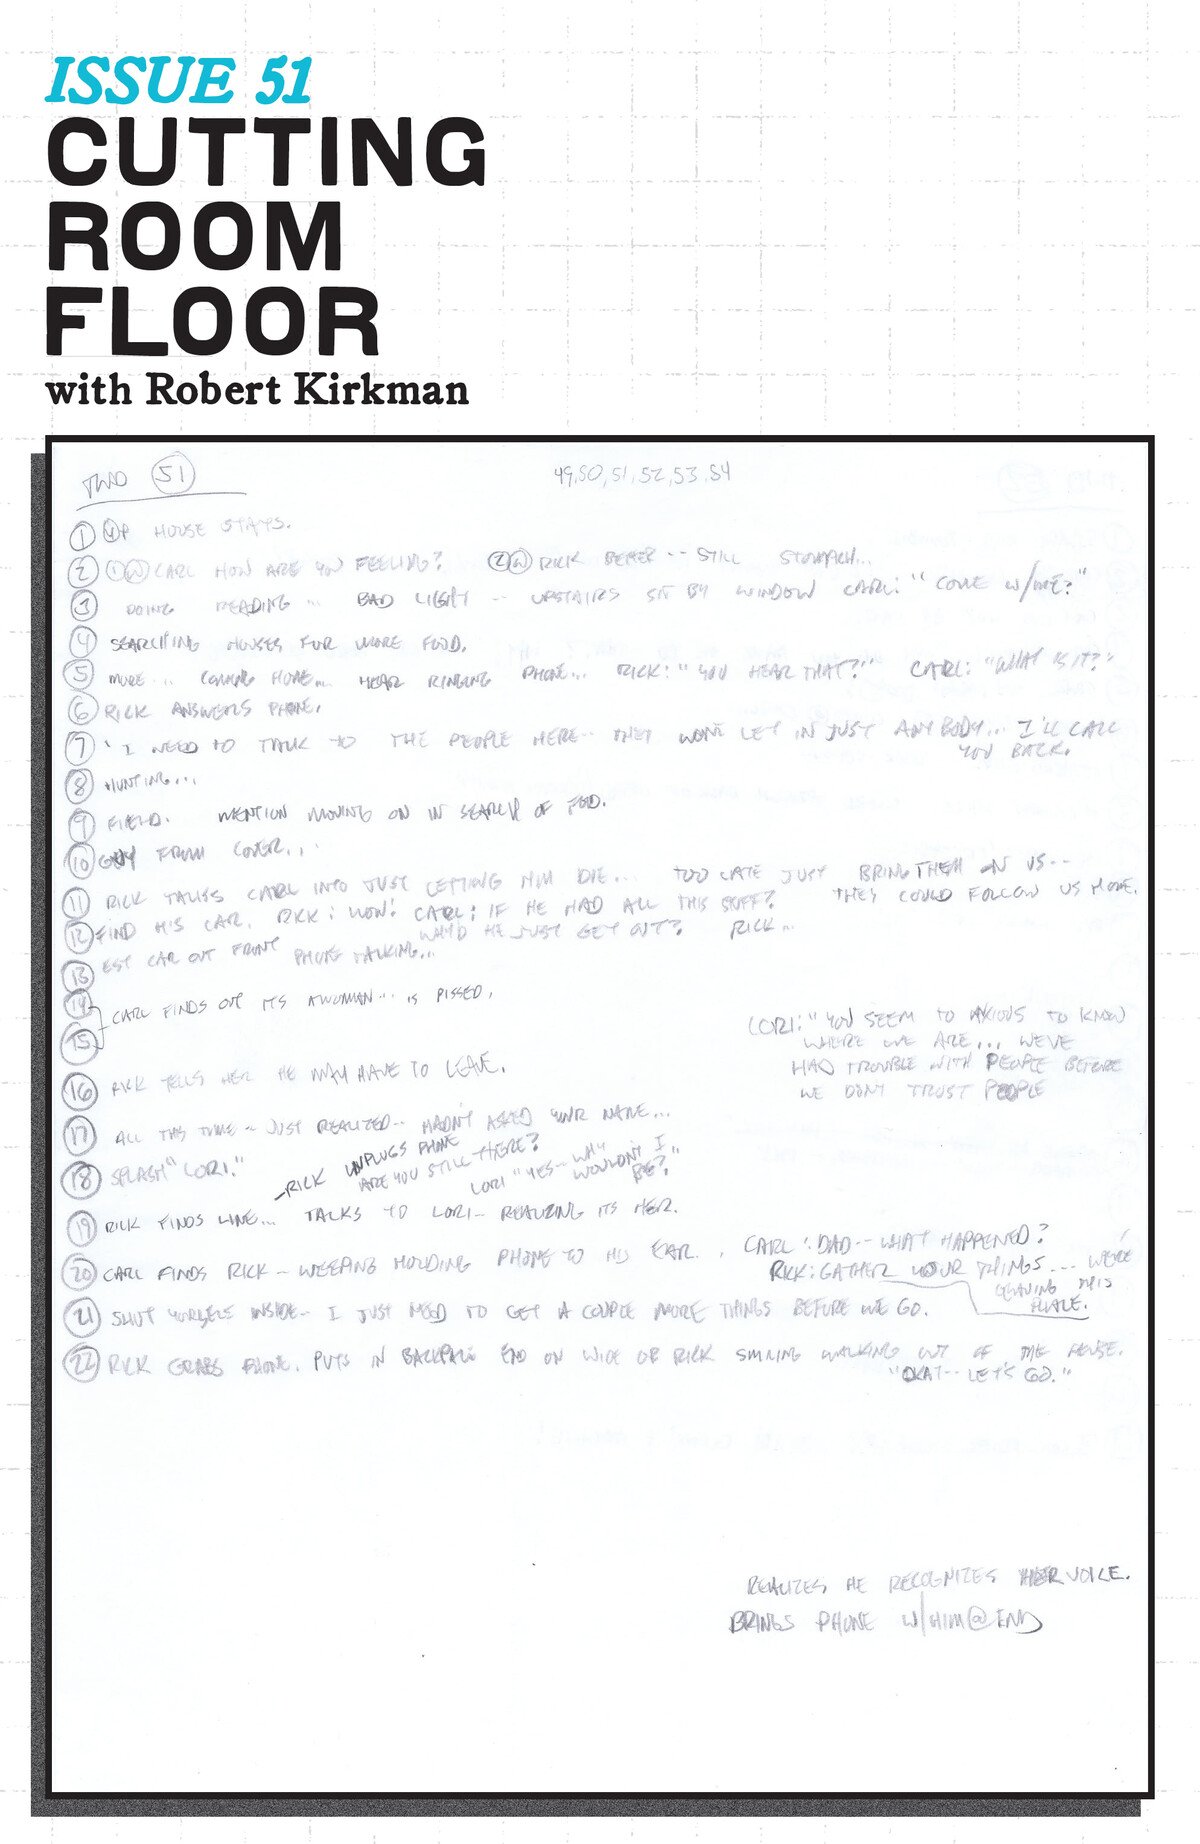 ISSUE 51
CUTTING
ROOM
FLOOR
with Robert Kirkman
TWD 51
49,50,51,52,53,54
1 HOUSE STAYS.
2 CARL HOW ARE YOU FEELING? RICK BETTER -- STILL STOMACH...
3 DOING READING... BAD LIGHT -- UPSTAIRS SIT BY WINDOW CARL: "COME W/ME?"
4 SEARCHING HOUSES FOR MORE FOOD.
5 MORE... COMING HOME... HEAR RINGING PHONE... RICK: "YOU HEAR THAT?" CARL: "WHAT IS IT?"
6 RICK ANSWERS PHONE.
7 "I NEED TO TALK TO THE PEOPLE HERE-- THEY WON'T LET IN JUST ANYBODY... I'LL CALL
YOU BACK.
8 HUNTING...
9 FIELD. MENTION MOVING ON IN SEARCH OF FOOD.
10 GUY FROM COVER...
11 RICK TALKS CARL INTO JUST LETTING HIM DIE... TOO LATE JUST BRING THEM ON US--
THEY COULD FOLLOW US HOME.
12 FIND HIS CAR. RICK: WOW! CARL: IF HE HAD ALL THIS STUFF?
WHY'D HE JUST GET OUT? RICK...
13 EST CAR OUT FRONT PHONE TALKING...
14
15 CARL FINDS OUT ITS A WOMAN... IS PISSED.
LORI: "YOU SEEM TO AXIOUS TO KNOW
WHERE WE ARE... WE'VE
HAD TROUBLE WITH PEOPLE BEFORE
WE DON'T TRUST PEOPLE
16 RICK TELLS HER HE MAY HAVE TO LEAVE.
17 ALL THIS TIME -- JUST REALIZED -- HADN'T ASKED YOUR NAME...
18 SPLASH "LORI."
-RICK UNPLUGS PHONE
ARE YOU STILL THERE?
LORI "YES-- WHY WOULDN'T I BE?"
19 RICK FINDS LINE... TALKS TO LORI-- REALIZING ITS HER.
20 CARL FINDS RICK -- WEEPING HOLDING PHONE TO HIS EAR. CARL: DAD -- WHAT HAPPENED?
RICK: GATHER YOUR THINGS... WE'RE
LEAVING THIS
PLACE.
21 SHUT YOURSELF INSIDE-- I JUST NEED TO GET A COUPLE MORE THINGS BEFORE WE GO.
22 RICK GRABS PHONE. PUTS IN BACKPACK END ON WIDE OF RICK SMILING WALKING OUT OF THE HOUSE.
"OKAY-- LET'S GO."
REALIZES HE RECOGNIZES HER VOICE.
BRINGS PHONE W/HIM @ END